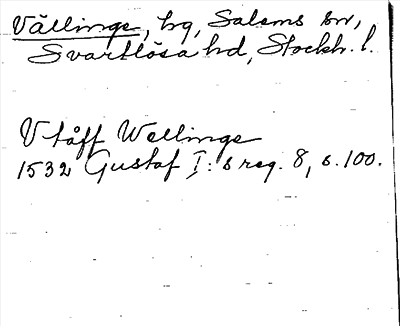 Vällinge, hg, Salems sn,
Svartlösa hd, Stockh. l.
V taff Wellinge
1532 Gustaf I:s reg. 8, s. 100.